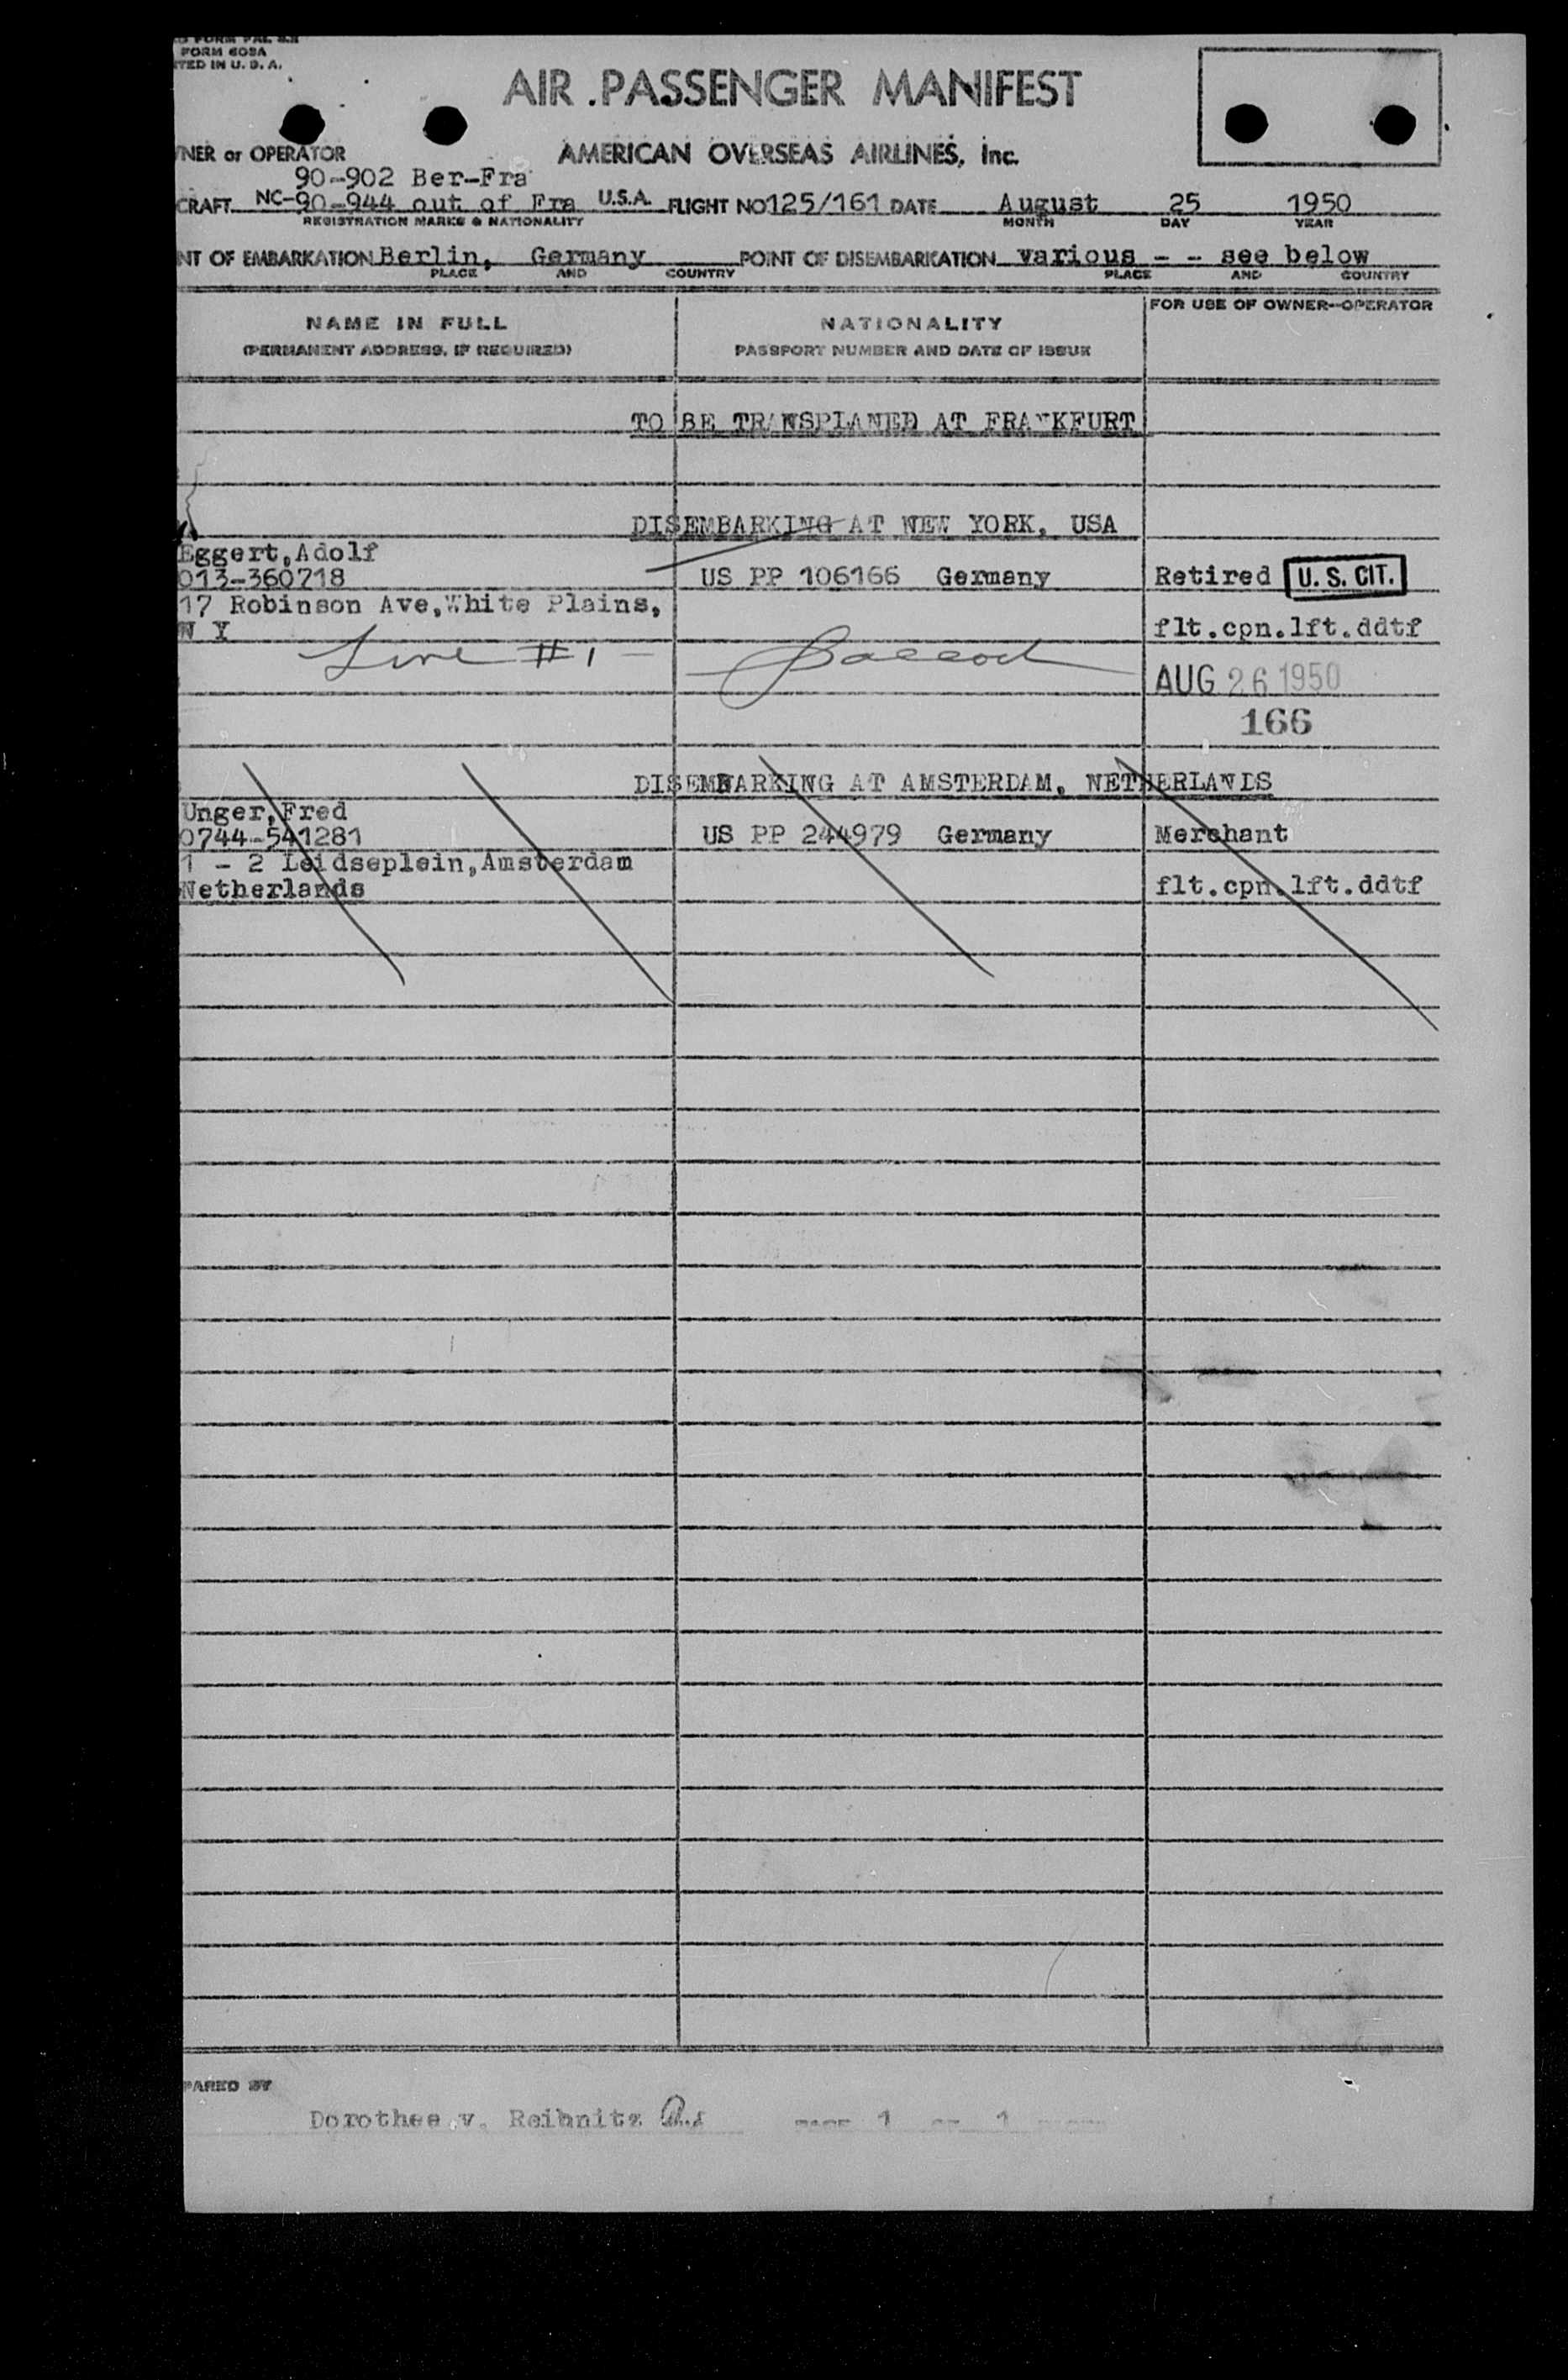 FORM 603A
TED IN U.S.A.
AIR PASSENGER MANIFEST
NER or OPERATOR
AMERICAN OVERSEAS AIRLINES, Inc.
90-902 Ber-Fra
CRAFT NC-90-944 out of Fra U.S.A. FLIGHT NO 125/161 DATE August 25 1950
REGISTRATION MARKS & NATIONALITY MONTH DAY YEAR
NT OF EMBARKATION Berlin, Germany POINT OF DISEMBARKATION various - - see below
PLACE AND COUNTRY PLACE AND COUNTRY
FOR USE OF OWNER-OPERATOR
NAME IN FULL NATIONALITY
(PERMANENT ADDRESS, IF REQUIRED) PASSPORT NUMBER AND DATE OF ISSUE
TO BE TRANSPLANED AT FRANKFURT
DISEMBARKING AT NEW YORK, USA
Eggert,Adolf
013-360718 US PP 106166 Germany Retired U.S. CIT.
17 Robinson Ave,White Plains,
N Y flt.cpn.lft.ddtf
Line #1 -
AUG 26 1950
166
DISEMBARKING AT AMSTERDAM, NETHERLANDS
Unger,Fred
0744-541281 US PP 244979 Germany Merchant
1 - 2 Leidseplein,Amsterdam
Netherlands flt.cpn.lft.ddtf
PARED BY
Dorothea v. Reibnitz PAGE 1 OF 1